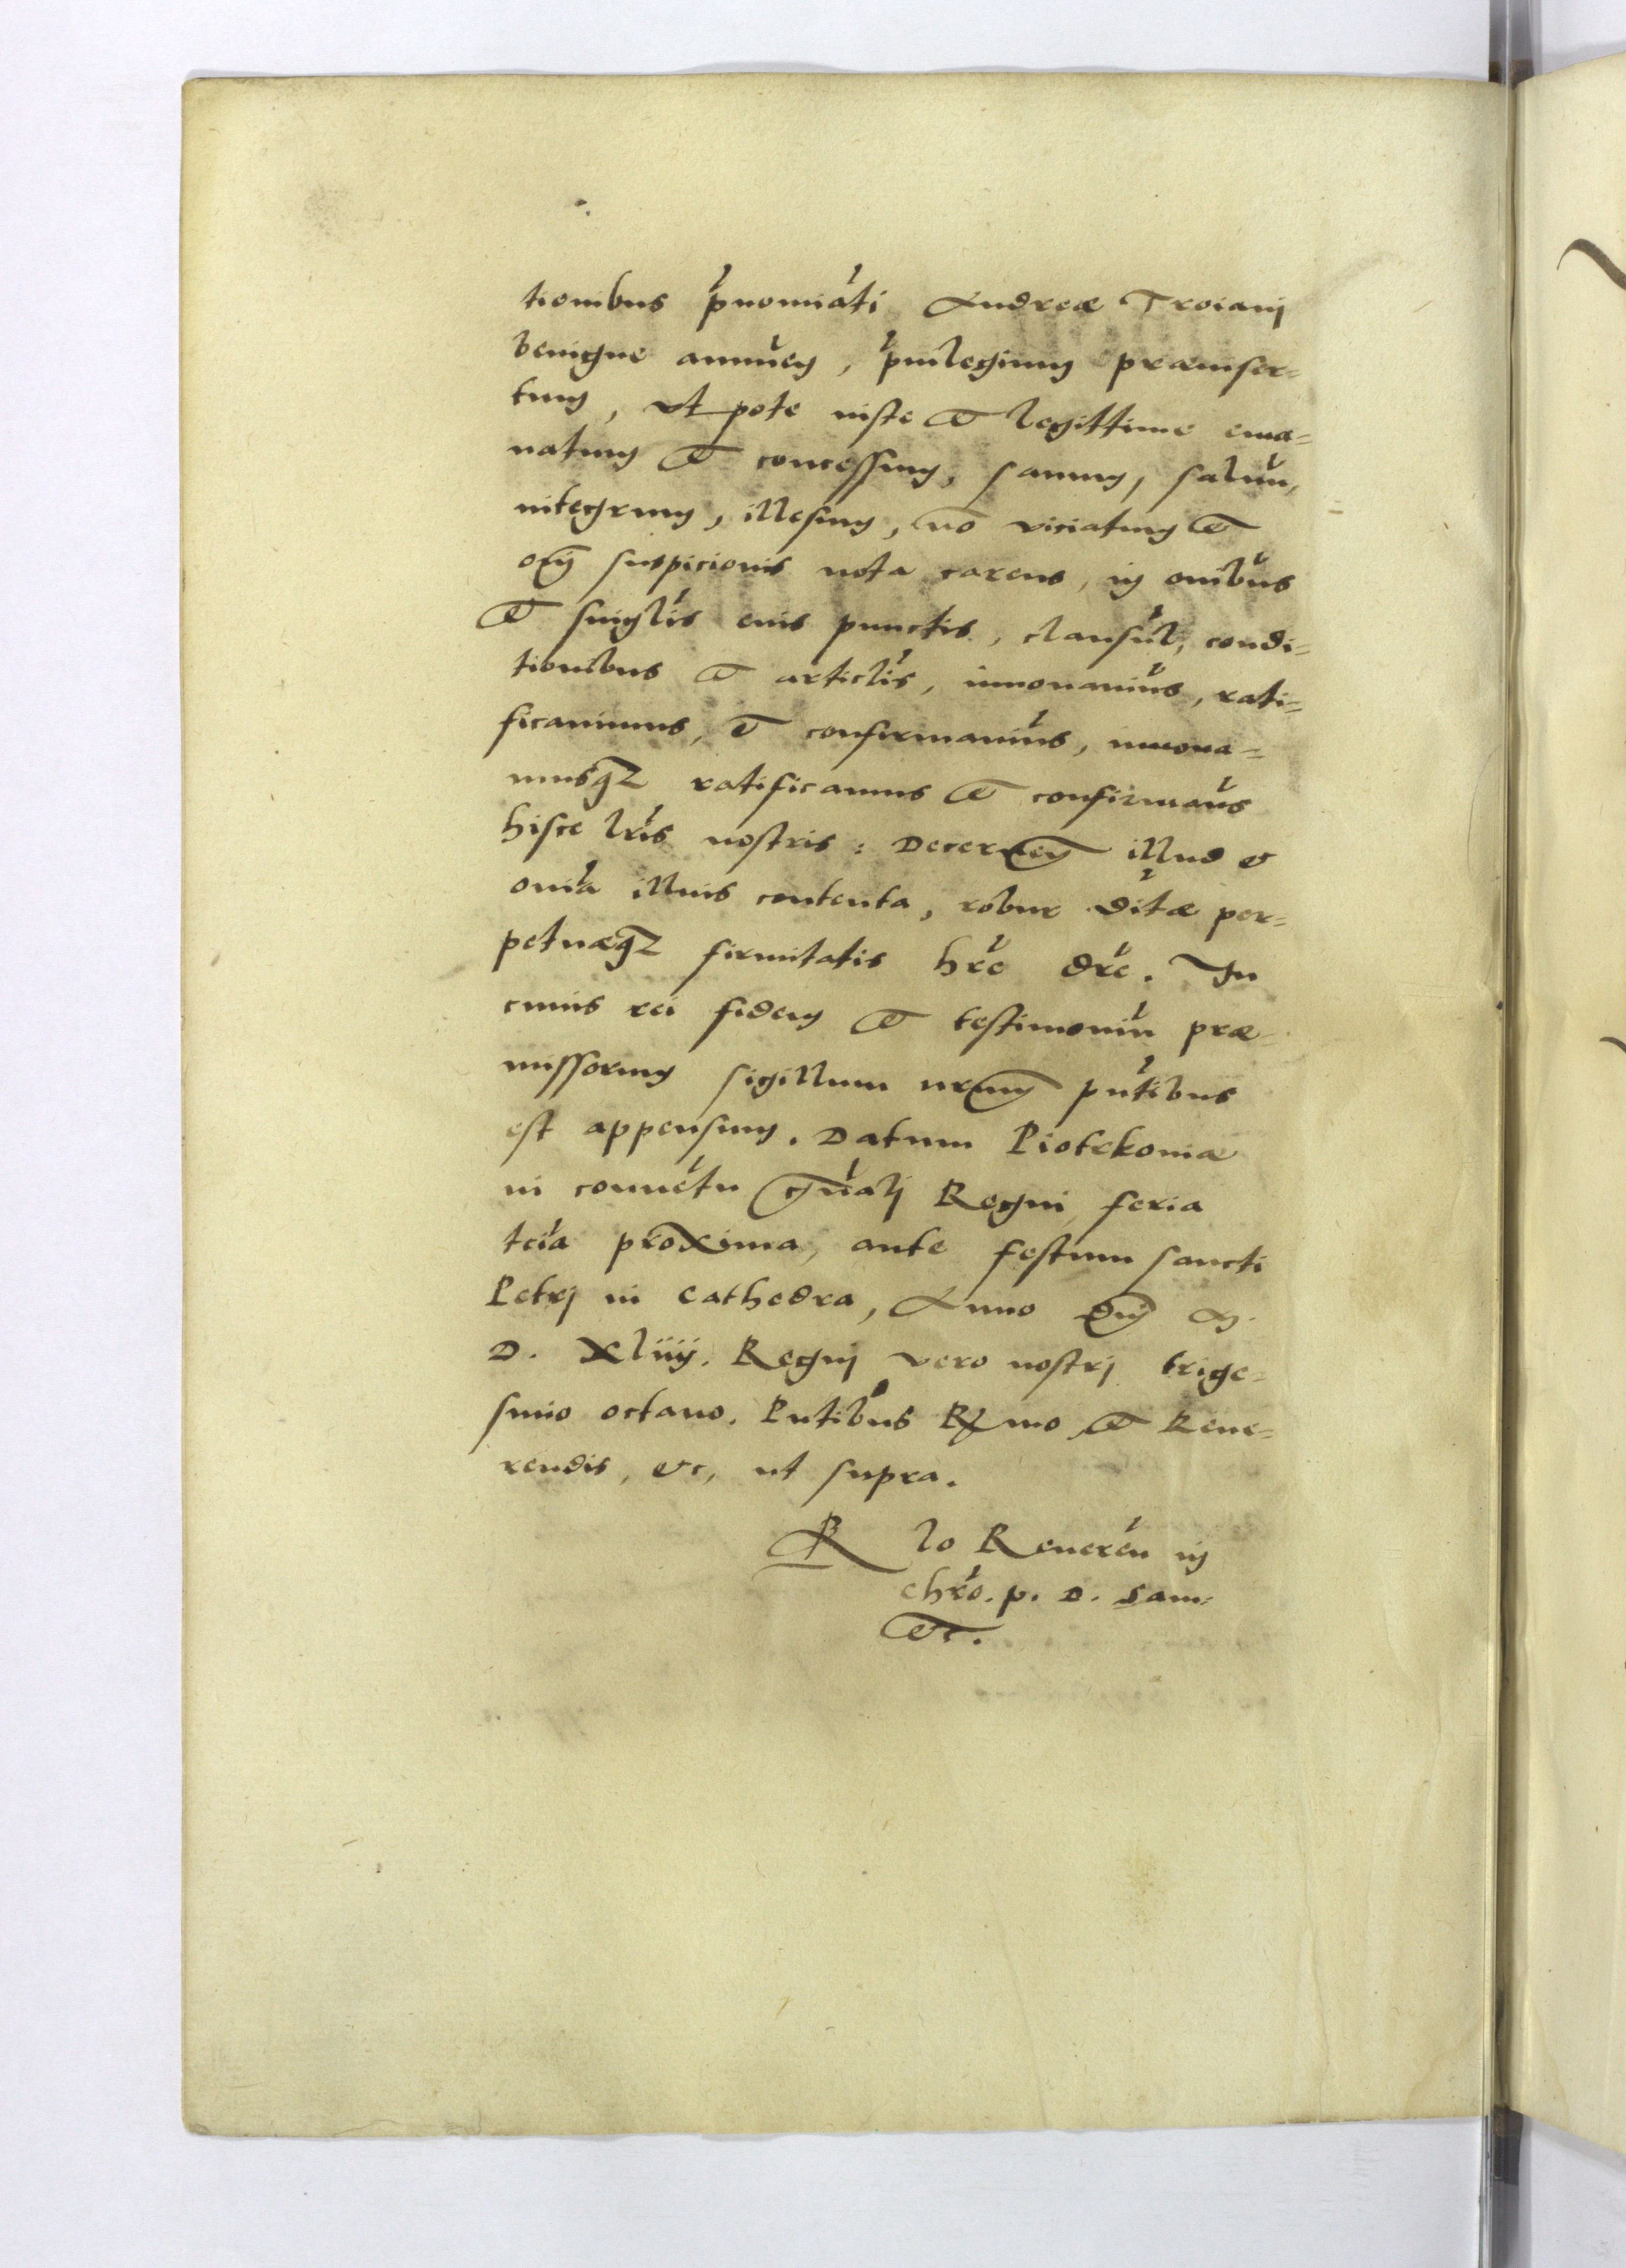 tionibus pnomiati Andreæ Troianj
benigne annuen, pnilegium præinser=
tum, vt pote iuste et legittime ema=
natum et concessum, sanum, saluu,
integrum, illesum, no viciatum et
oĩ suspicionis nota carens, in onibus
et singlis eius punctis, clausul, condi=
tionibus et articlis, innouauius, rati=
ficauimus, et confirmauius, innoua=
musqz ratificamus et confirmaus
hisce lris nostris: Decernen illud &
onia illius contenta, robur ditæ per=
petuæqz firmitatis hre dre. In
cuius rei fidem et testimoniu præ=
missorum sigillum nrum pntibus
est appensum. Datum Piotrkouiæ
in conuetu gnalj Regni feria
tcia proxima, ante festum sancti
Petrj in Cathedra, Anno dnj M.
D. Xliiij. Regnj vero nostrj trige=
simo octauo. Pntibus Rmo et Reue=
rendis, &c, ut supra.
R lo Reueren in
chro. p. D. Sam:
etc.